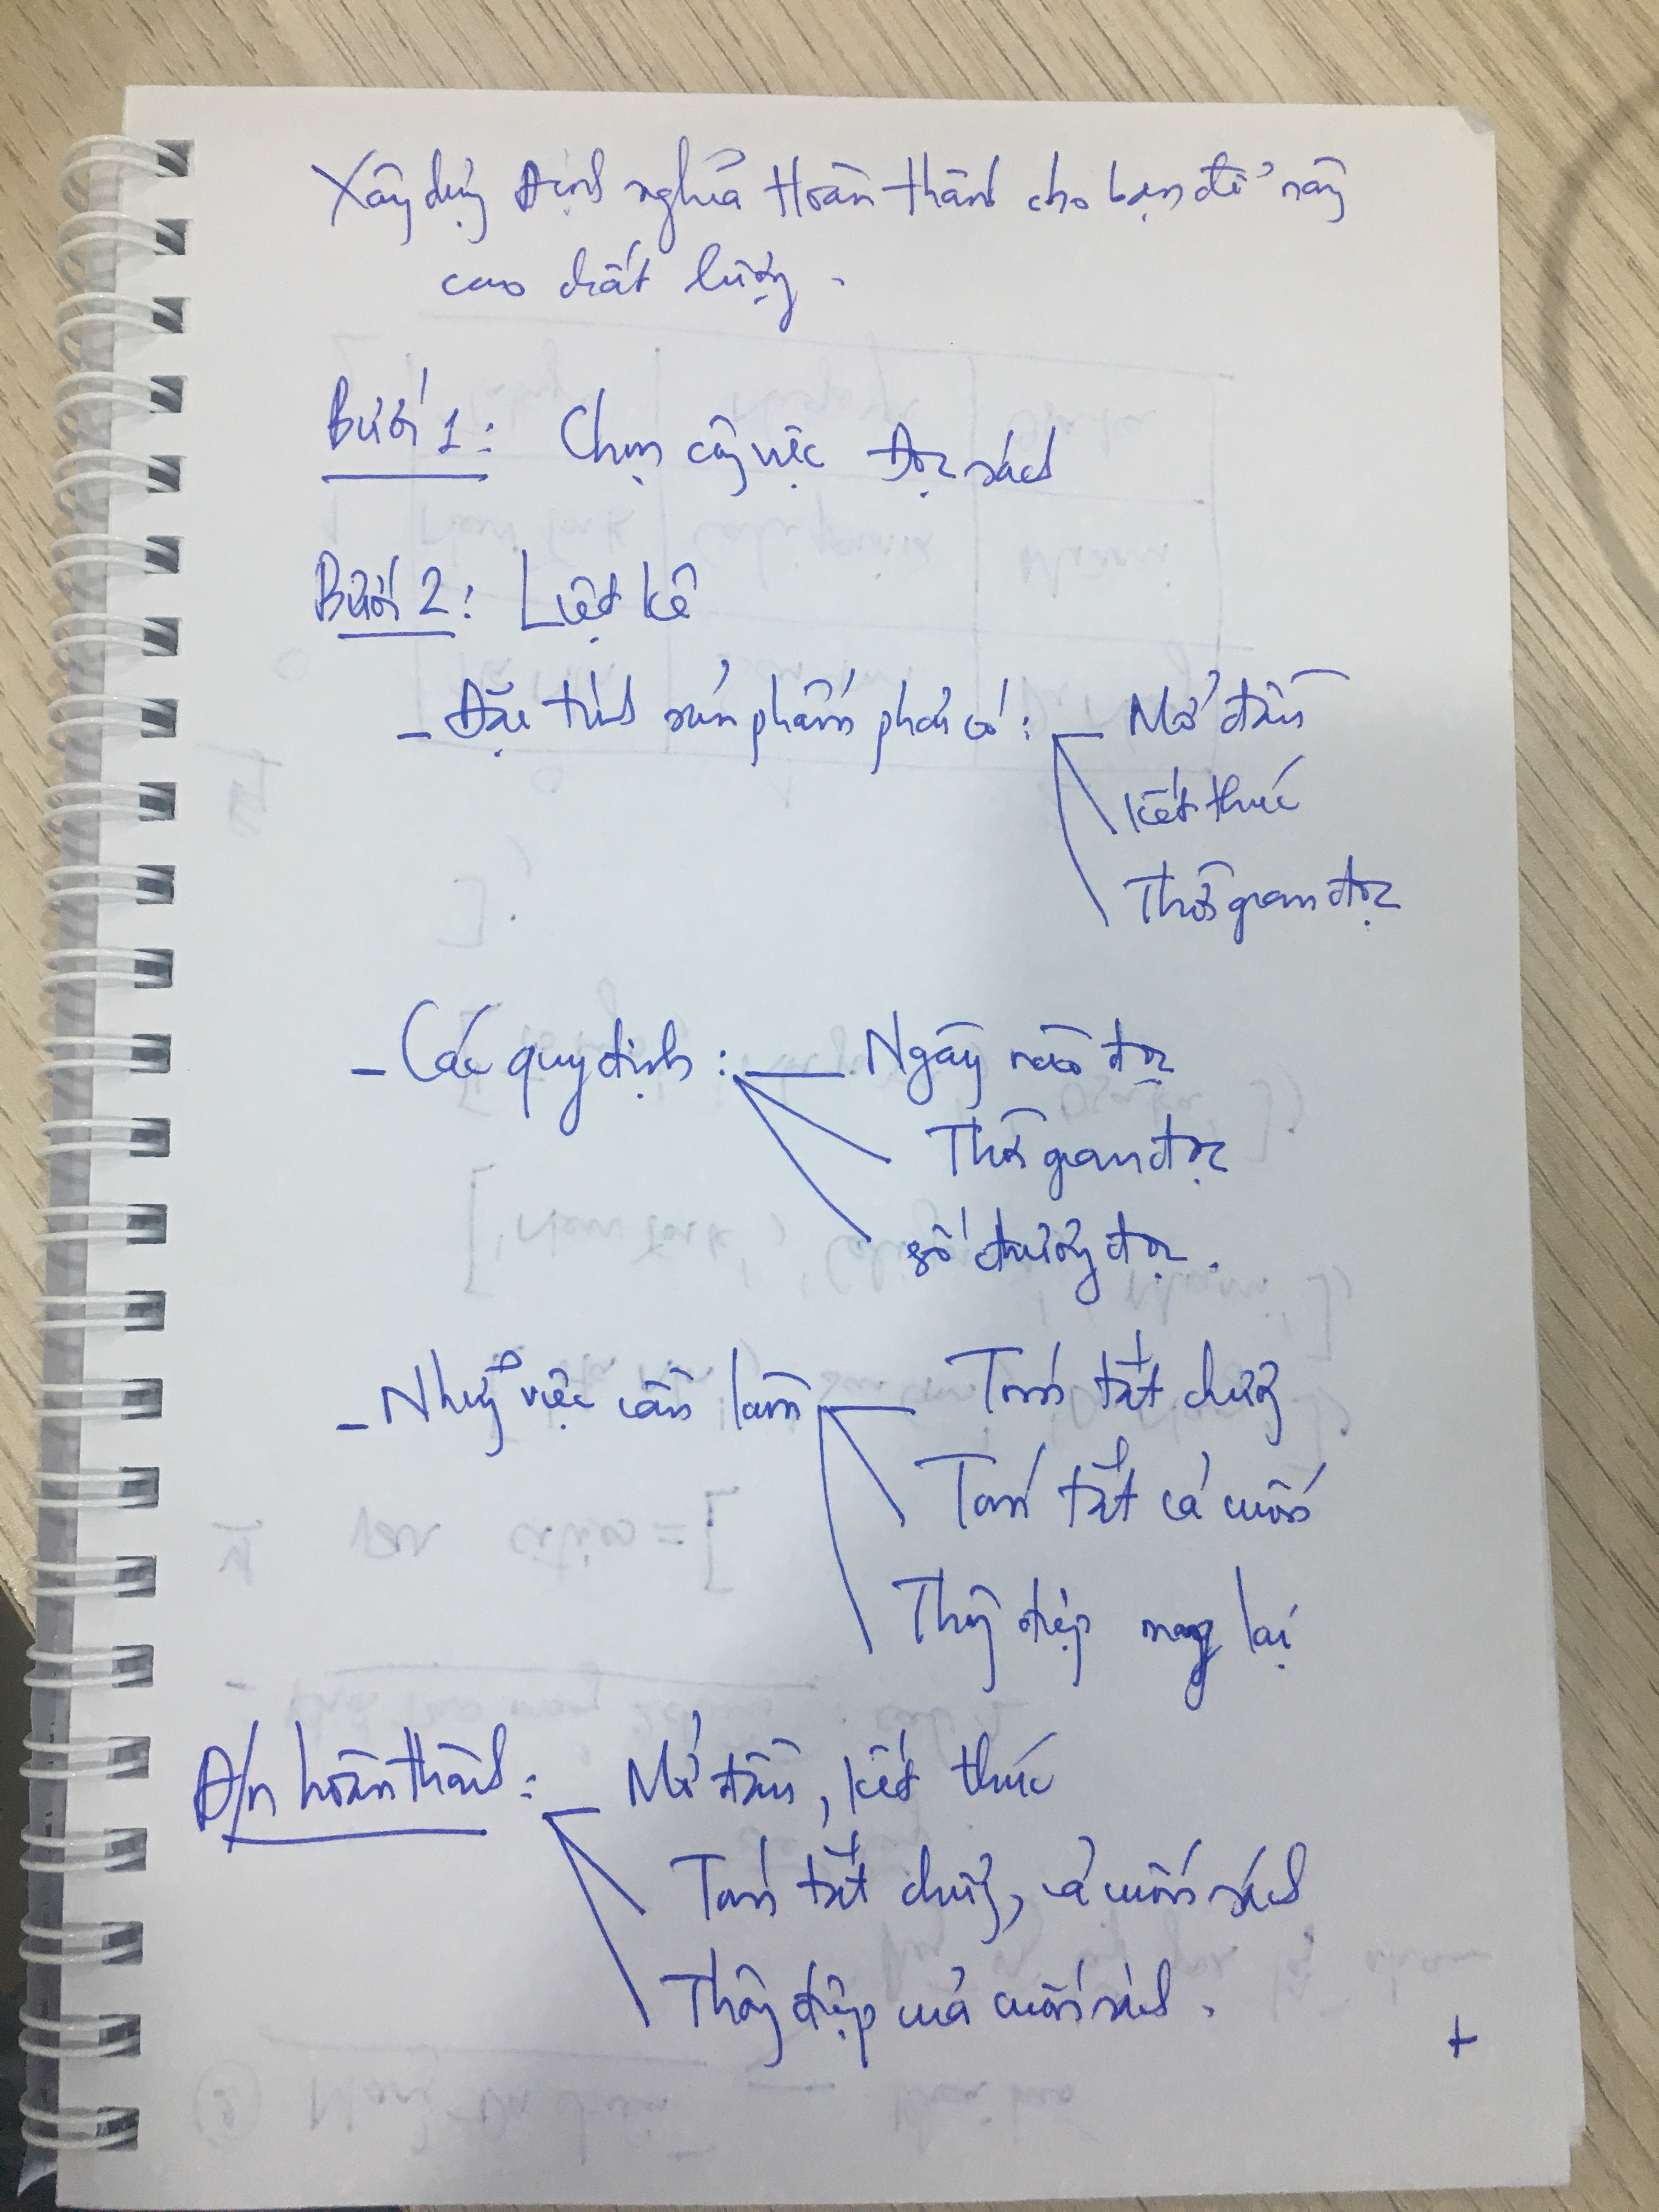 Xây dựng Định nghĩa Hoàn thành cho bạn để nâng
cao chất lượng.
Bước 1: Chọn công việc Đọc sách
Bước 2: Liệt kê
- Đặc tính sản phẩm phải có: - Mở đầu
Kết thúc
Thời gian đọc
- Các quy định: - Ngày nào đọc
Thời gian đọc
số chương đọc.
- Những việc cần làm - Tóm tắt chương
Tóm tắt cả cuốn
Thông điệp mang lại
Đ/n hoàn thành: - Mở đầu, kết thúc
Tóm tắt chương, cả cuốn sách
Thông điệp của cuốn sách.
+